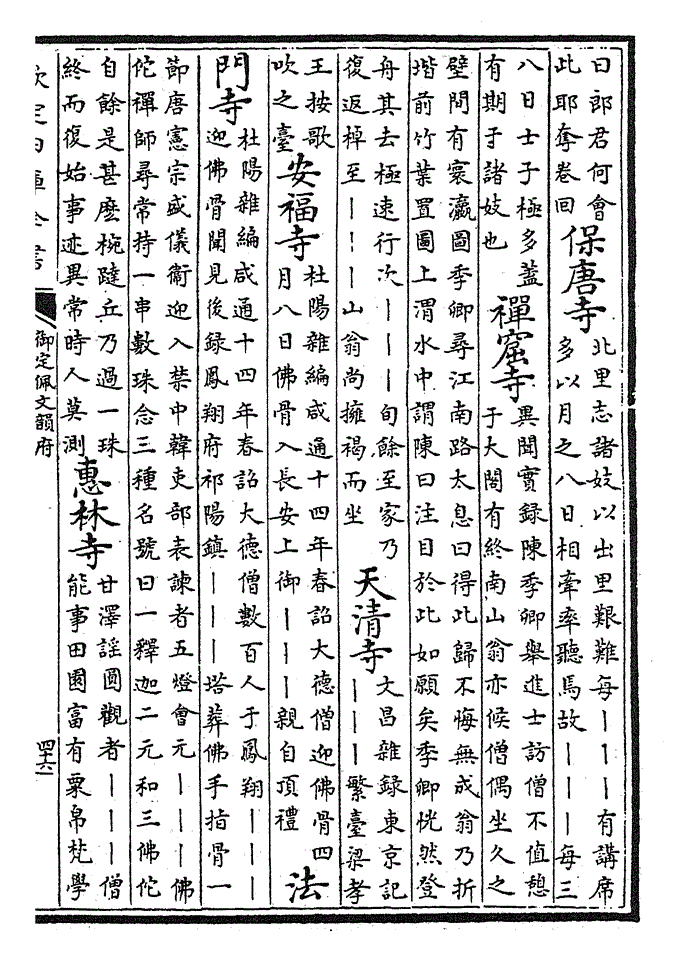 曰郎君何會
此耶奪卷回
保唐寺
北里志諸妓以出里艱難每｜｜｜有講席
多以月之八日相牽率聽焉故｜｜｜每三
八日士子極多蓋
有期于諸妓也
禪窟寺
異聞實録陳季卿舉進士訪僧不值憩
于大閣有終南山翁亦候僧偶坐久之
壁間有寰瀛圖季卿尋江南路太息曰得此歸不悔無成翁乃折
堦前竹葉置圖上渭水中謂陳曰注目於此如願矣季卿恍然登
舟其去極速行次｜｜｜旬餘至家乃
復返棹至｜｜｜山翁尚擁褐而坐
天清寺
文昌雜録東京記
｜｜｜繁臺梁孝
王按歌
吹之臺
安福寺
杜陽雜編咸通十四年春詔大德僧迎佛骨四
月八日佛骨入長安上御｜｜｜親自頂禮
法
門寺
杜陽雜編咸通十四年春詔大德僧數百人于鳳翔｜｜｜
迎佛骨聞見後録鳳翔府祁陽鎮｜｜｜塔葬佛手指骨一
節唐憲宗盛儀衛迎入禁中韓吏部表諫者五燈會元｜｜｜佛
佗禪師尋常持一串數珠念三種名號曰一釋迦二元和三佛佗
自餘是甚麽椀躂丘乃過一珠
終而復始事迹異常時人莫測
惠林寺
甘澤謡圓觀者｜｜｜僧
能事田園富有粟帛梵學
欽定四庫全書
御定佩文韻府
四十六